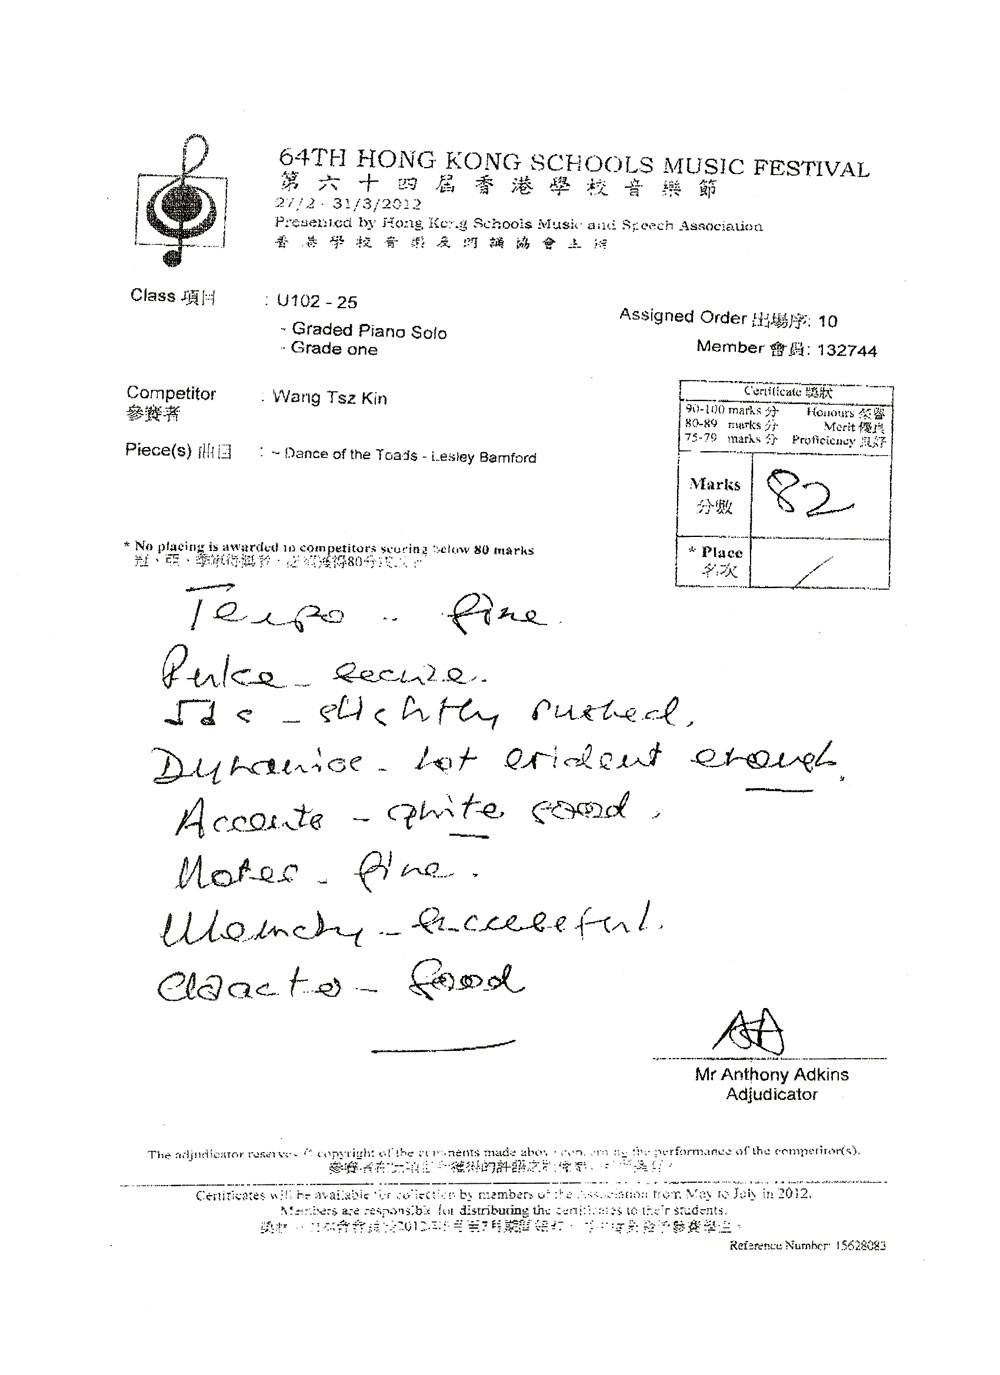 64TH HONG KONG SCHOOLS MUSIC FESTIVAL
第六十四屆香港學校音樂節
27/2 - 31/3/2012
Presented by Hong Kong Schools Music and Speech Association
香港學校音樂及朗誦協會主辦
Class 項目 : U102 - 25
- Graded Piano Solo
- Grade one
Assigned Order 出場序: 10
Member 會員: 132744
Competitor : Wang Tsz Kin
參賽者
Piece(s) 曲目 : ~ Dance of the Toads - Lesley Bamford
Certificate 獎狀
90-100 marks 分 Honours 榮譽
80-89 marks 分 Merit 優良
75-79 marks 分 Proficiency 良好
Marks 82
分數
* Place /
名次
* No placing is awarded to competitors scoring below 80 marks
Tempo - fine.
Pulse - secure.
slightly rushed.
Dynamics - not evident enough.
Accents - quite good.
Notes - fine.
Memory - successful.
Character - good
Mr Anthony Adkins
Adjudicator
The adjudicator reserves copyright of the comments made above concerning the performance of the competitor(s).
Certificates will be available for collection by members of the Association from May to July in 2012.
Members are responsible for distributing the certificates to their students.
Reference Number 15628083